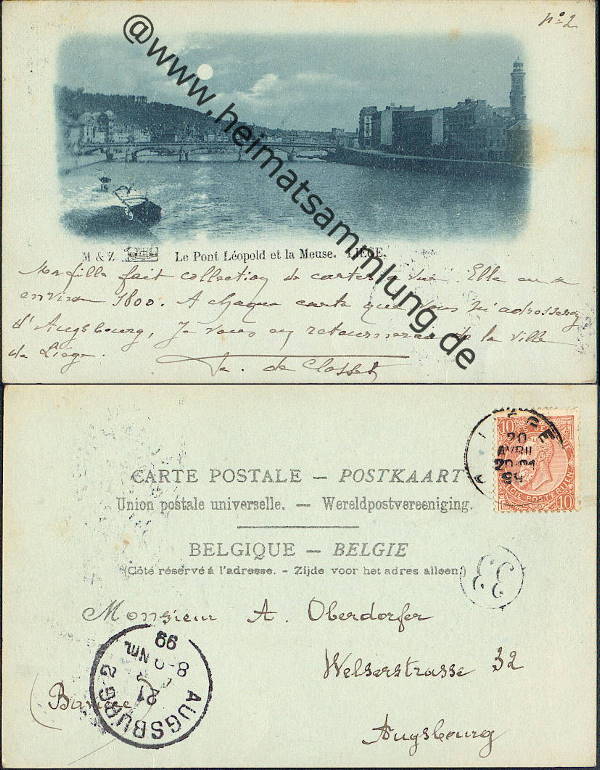 No 2
@www.heimatsammlung.de
M & Z. Le Pont Léopold et la Meuse. LIÉGE.
Ma fille fait collection de cartes à vue. Elle en a
environ 1800. A chaque carte que vous m'adresserez
d'Augsbourg, je vous en retournerai de la ville
de Liège.
de Closset
LIEGE
20
AVRIL
99
10 10
CARTE POSTALE – POSTKAART
Union postale universelle. — Wereldpostvereeniging.
BELGIQUE – BELGIE
(Côté réservé à l'adresse. - Zijde voor het adres alleen.)
33
Monsieur A. Oberdorfer
Welserstrasse 32
Augsbourg
AUGSBURG 2
21
8-9 Nm.
99